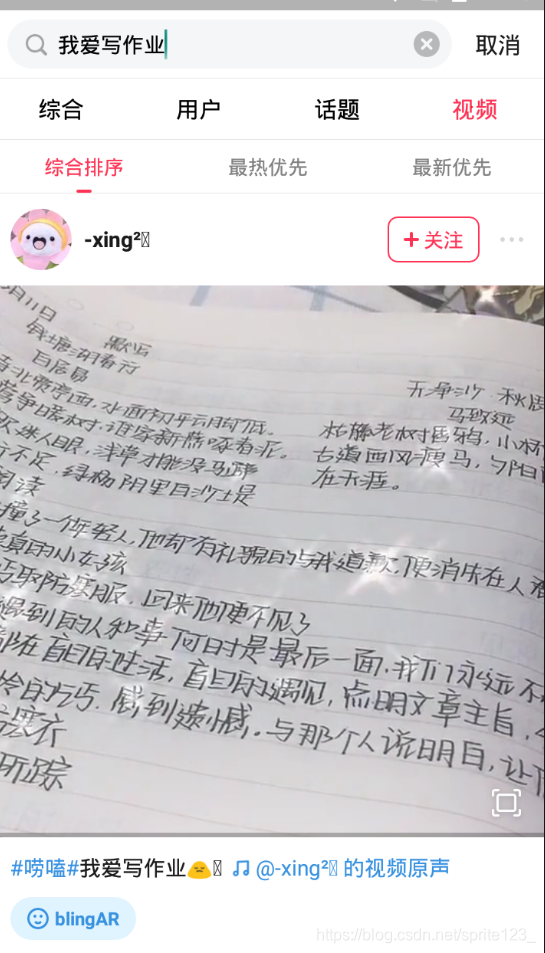 我爱写作业
取消
综合 用户 话题 视频
综合排序 最热优先 最新优先
-xing²
+ 关注
月11日
默写
钱塘湖春行
白居易
天净沙 秋思
马致远
寺北贾亭西,水面初平云脚低。
莺争暖树,谁家新燕啄春泥。
迷人眼,浅草才能没马蹄
不足,绿杨阴里白沙堤
枯藤老树昏鸦,小桥
古道西风瘦马,夕阳
在天涯。
阅读
撞了一个年轻人,他却有礼貌的与我道歉,便消失在人
真的小女孩
取防寒服,回来他便不见了
遇到的人和事何时是最后一面,我们永远不
盲目的生活,盲目的遇见,点明文章主旨,
感到遗憾。与那个人说明白,让
踪
#唠嗑#我爱写作业😔 @-xing² 的视频原声
blingAR
https://blog.csdn.net/sprite123_